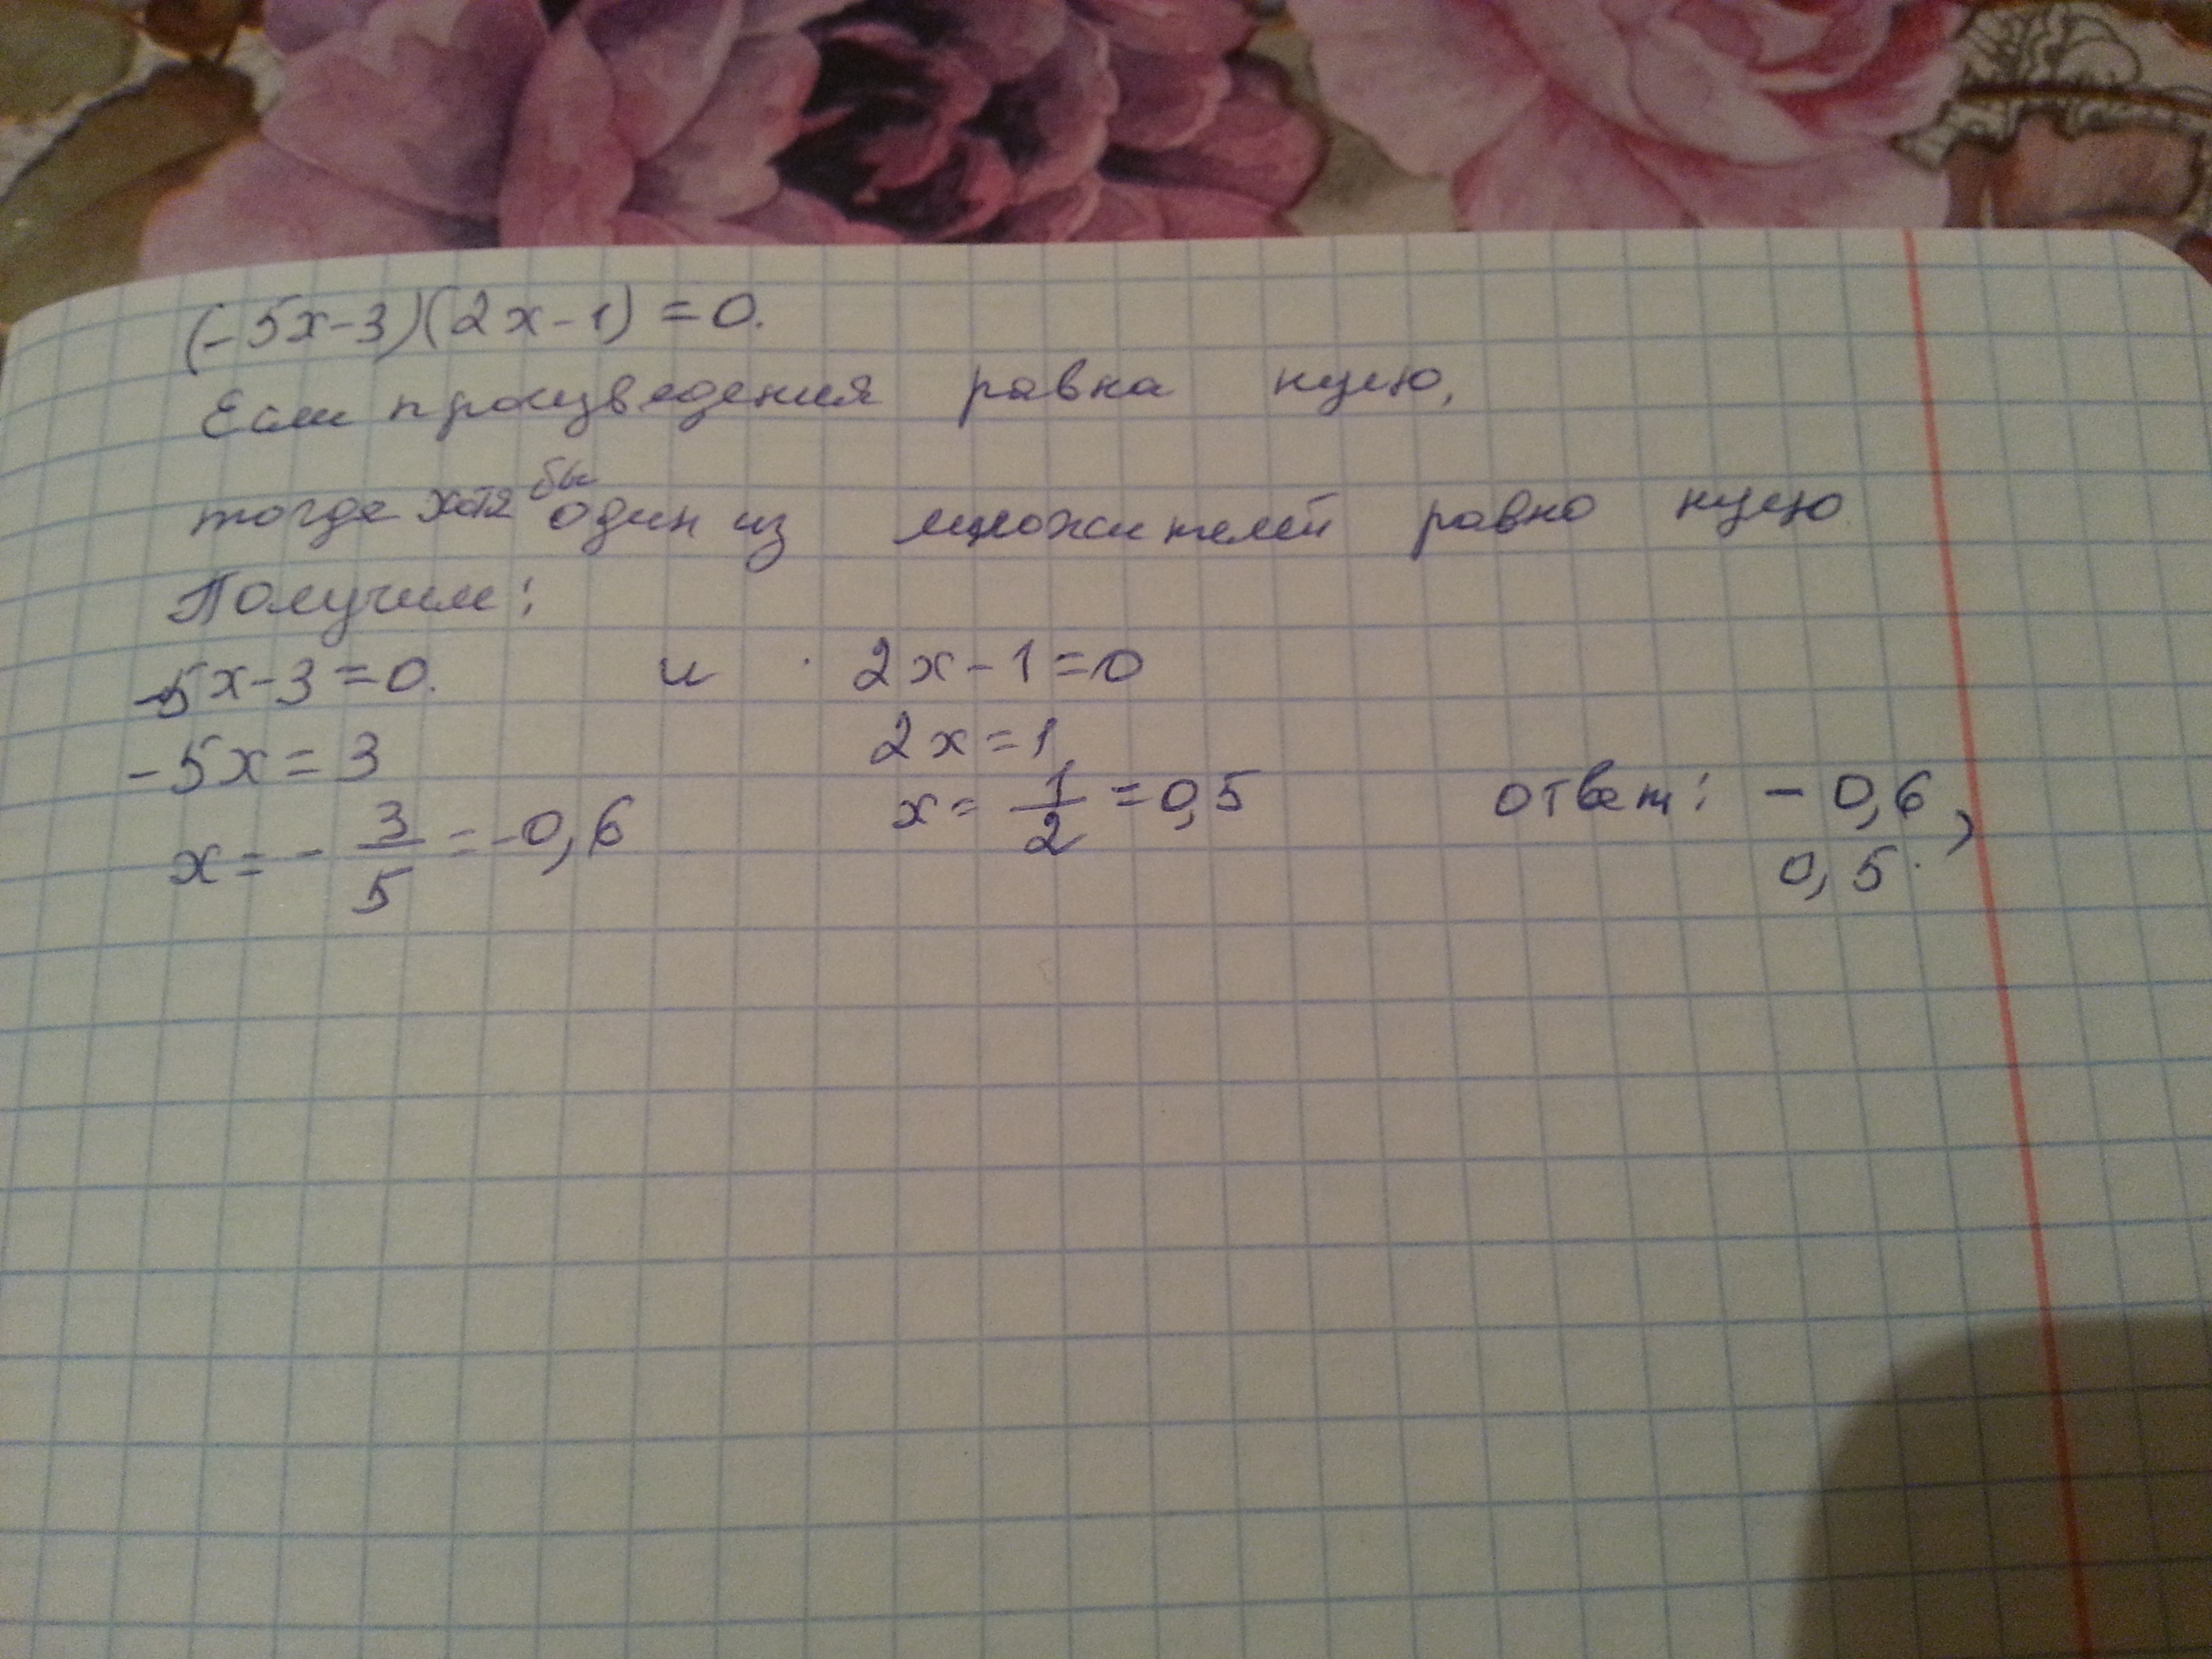 (-5x-3)(2x-1)=0.
Если произведения равна нулю,
тогда хотя бы один из множителей равно нулю
Получим:
-5x-3=0. и 2x-1=0
-5x=3 2x=1
x=-3/5=-0,6 x=1/2=0,5 ответ: -0,6,
0,5.